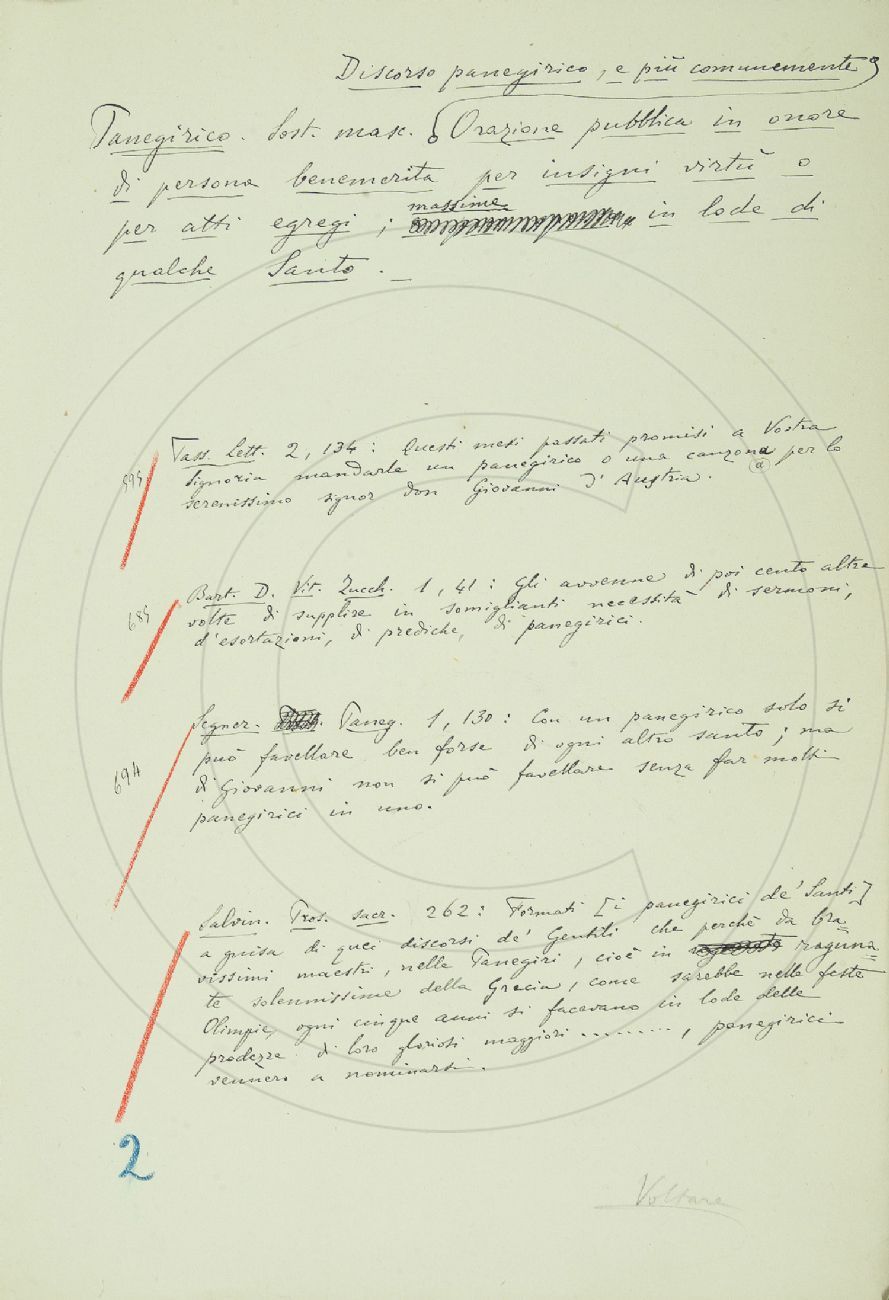 Discorso panegirico, e più comunemente
Panegirico. Sost. masc. Orazione pubblica in onore
di persona benemerita per insigni virtù o
per atti egregi; massime in lode di
qualche Santo. _
Tass. Lett. 2, 134: Questi mesi passati promisi a Vostra
Signoria mandarle un panegirico o una canzona per lo
(a)
serenissimo signor don Giovanni d'Austria.
Bart. D. Vit. Zucch. 1, 41: Gli avvenne di poi cento altre
685
volte di supplire in somiglianti necessità di sermoni,
d'esortazioni, di prediche, di panegirici.
Segner. Paneg. 1, 130: Con un panegirico solo si
694
può favellare ben forse di ogni altro santo; ma
di Giovanni non si può favellare senza far molti
panegirici in uno.
Salvin. Pros. sacr. 262: Formati [i panegirici de' Santi]
a guisa di quei discorsi de' Gentili che perchè da bra=
vissimi maestri, nelle Panegiri, cioè in raguna=
te solennissime della Grecia, come sarebbe nelle feste
Olimpie, ogni cinque anni si facevano in lode delle
prodezze di loro gloriosi maggiori .........., panegirici
vennero a nominarsi.
2
Voltare